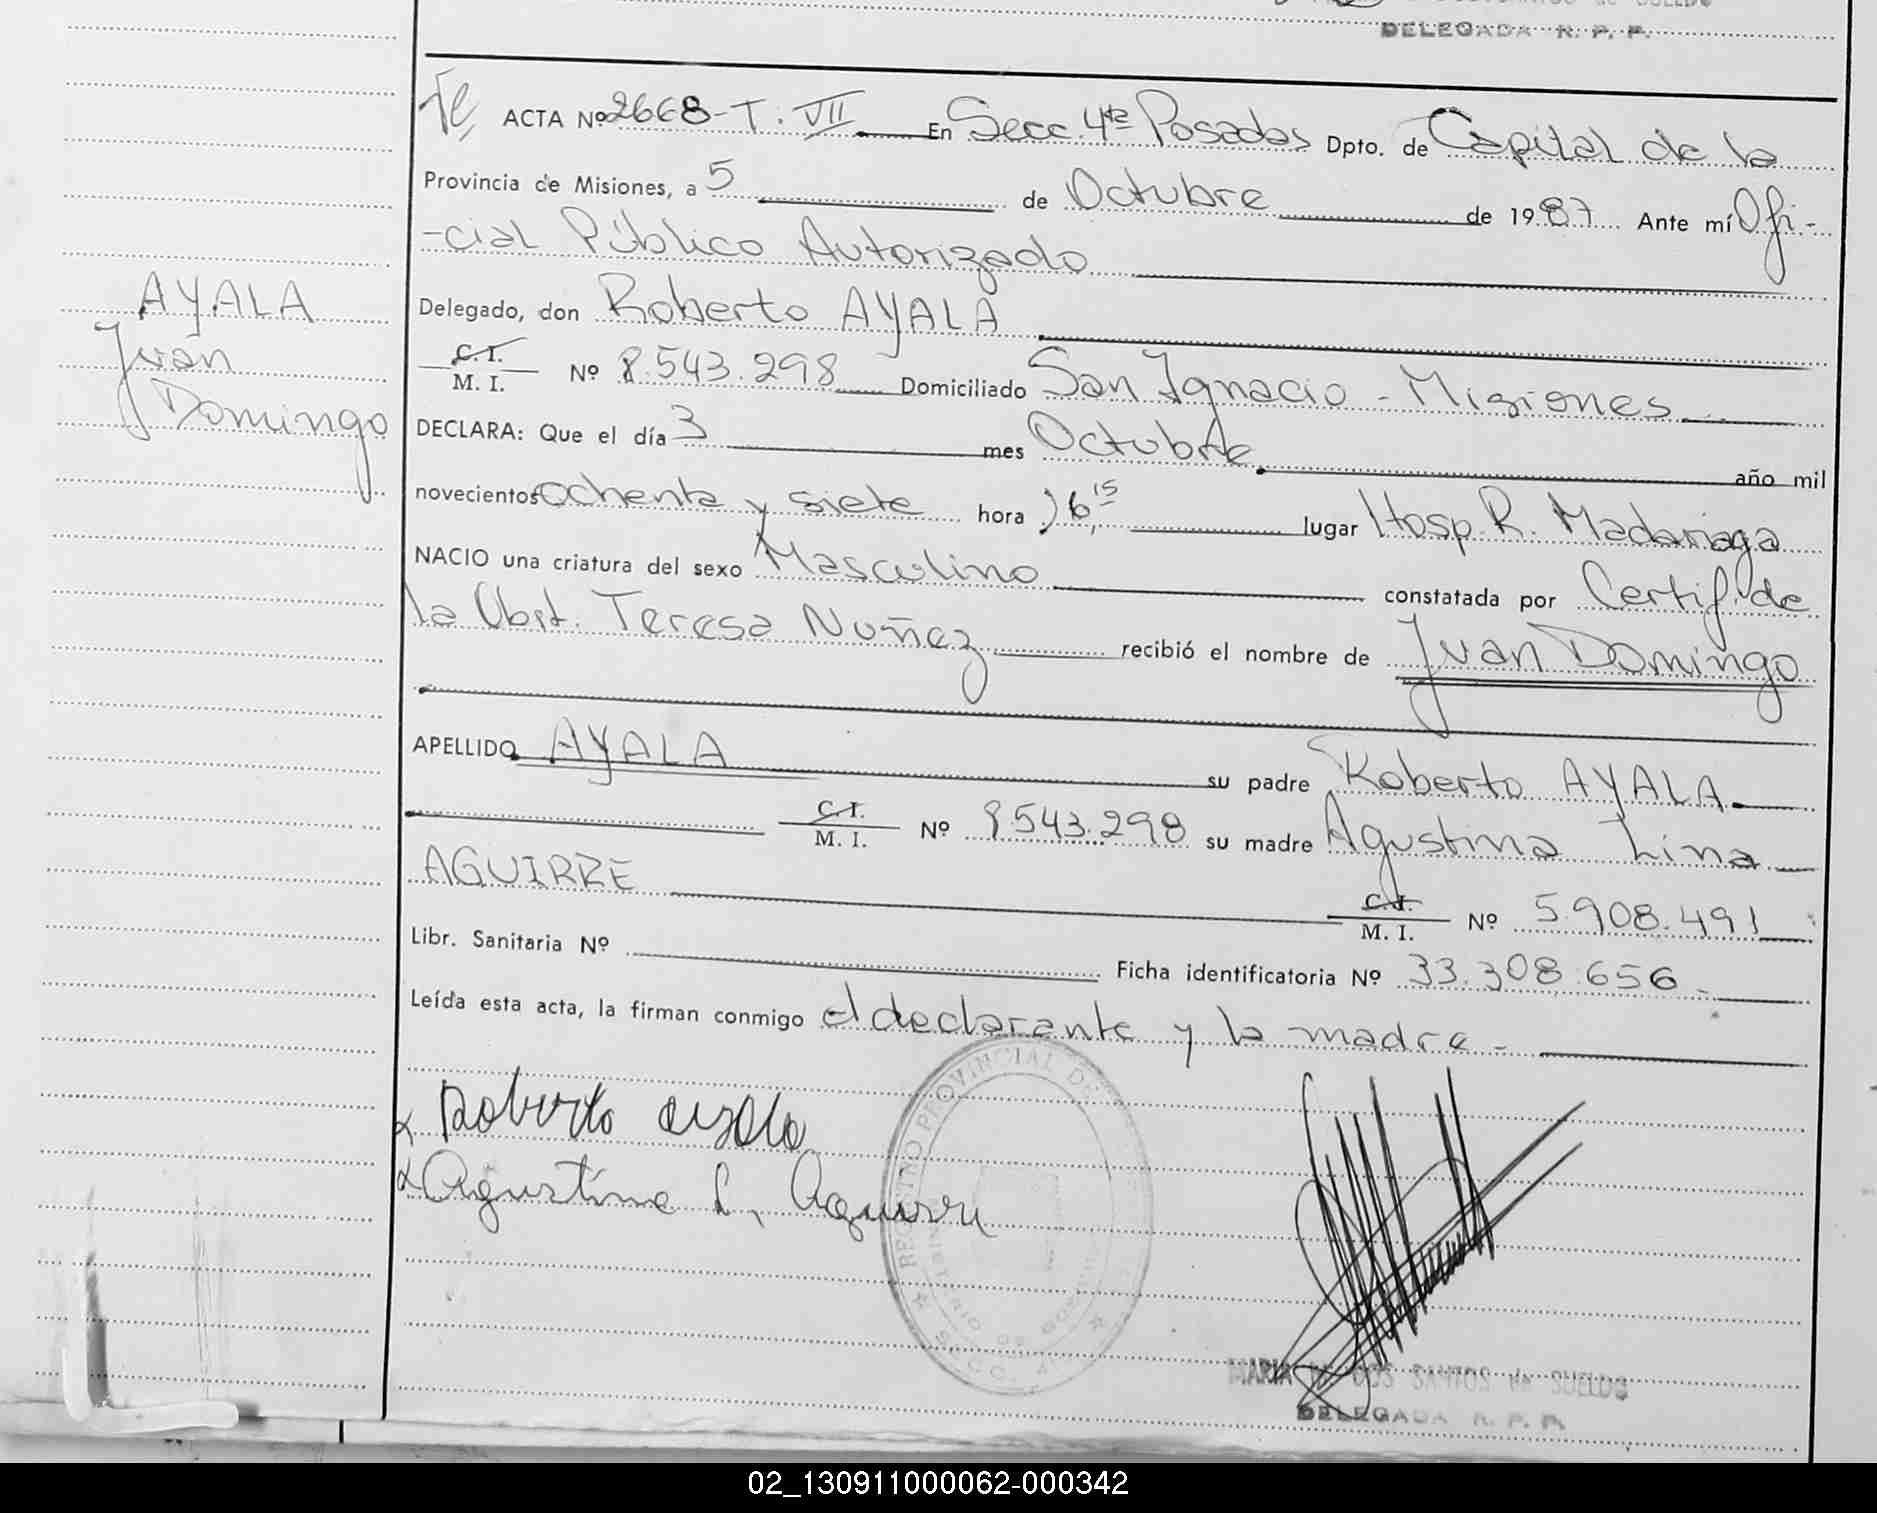 DELEGADA R. P. P.
ACTA Nº 2668-T. VII En Secc. 4ta Posadas Dpto. de Capital de la
Provincia de Misiones, a 5 de Octubre de 1987 Ante mí Ofi-
-cial Público Autorizado
Delegado, don Roberto AYALA
C.I. / M. I. Nº 8.543.298 Domiciliado San Ignacio - Misiones
DECLARA: Que el día 3 mes Octubre año mil
novecientos ochenta y siete hora 16,15 lugar Hosp. R. Madariaga
NACIO una criatura del sexo Masculino constatada por Certif. de
la Obst. Teresa Nuñez recibió el nombre de Juan Domingo
APELLIDO AYALA su padre Roberto AYALA
C.I. / M. I. Nº 8543.298 su madre Agustina Lina
AGUIRRE C.I. / M. I. Nº 5.908.491
Libr. Sanitaria Nº Ficha identificatoria Nº 33.308.656 -
Leída esta acta, la firman conmigo el declarante y la madre -
AYALA
Juan
Domingo
Roberto Ayala
Agustina L. Aguirre
REGISTRO PROVINCIAL DE
MINISTERIO DE GOBIERNO
SECC. 4
MARIA DOS SANTOS de SUELDO
DELEGADA R. P. P.
02_130911000062-000342